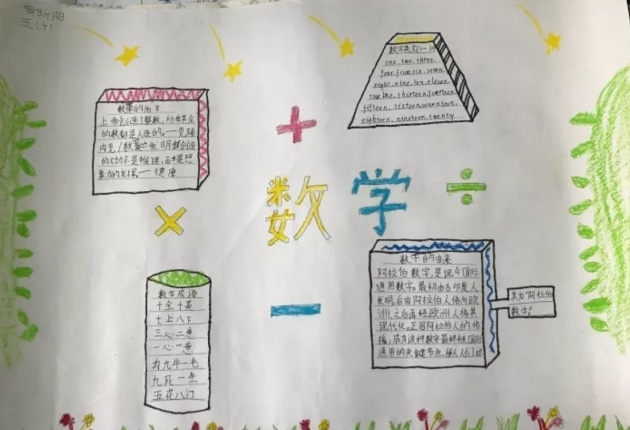 五(4)
数学的名言
上帝创造了整数,所有其余
的数都是人造的。——克隆
内克
数学英文1—20
one.two.three.
four.five.six.seven.
eight.nine.ten.eleven
twelve.thirteen.fourteen
fifteen.sixteen.seventeen.
eighteen.nineteen.twenty
+
数学
÷
×
−
数学成语
十全十美
七上八下
三心二意
一心一意
九牛一毛
九死一生
五花八门
数字的由来
阿拉伯数字,是现今国际
通用数字。最初由古印度人
发明,后由阿拉伯人传向欧
洲,之后再经欧洲人将其
现代化。正因阿拉伯人的传
播,成为该种数字最终被国际
通用的关键节点,
"阿拉伯
数字"